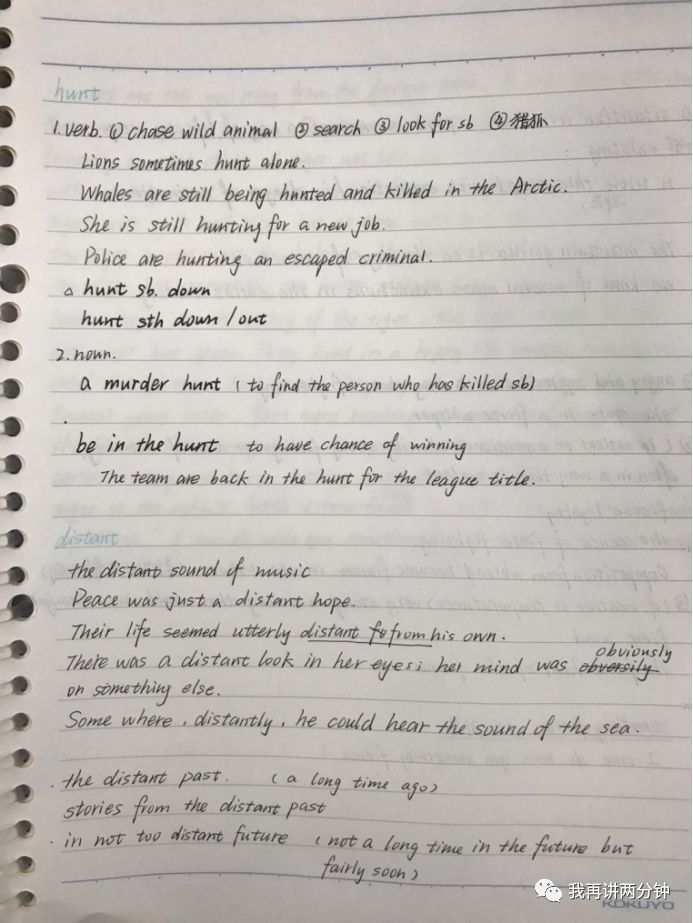 hunt
1. verb. ① chase wild animal ② search ③ look for sb ④ 猎狐
Lions sometimes hunt alone.
Whales are still being hunted and killed in the Arctic.
She is still hunting for a new job.
Police are hunting an escaped criminal.
△ hunt sb. down
hunt sth down / out
2. noun.
a murder hunt ( to find the person who has killed sb)
·
be in the hunt to have chance of winning
The team are back in the hunt for the league title.
distant
the distant sound of music
Peace was just a distant hope.
Their life seemed utterly distant from his own.
obviously
There was a distant look in her eyes; her mind was obversily
on something else.
Some where, distantly, he could hear the sound of the sea.
· the distant past. ( a long time ago)
stories from the distant past
· in not too distant future ( not a long time in the future but
fairly soon )
我再讲两分钟
KOKUYO